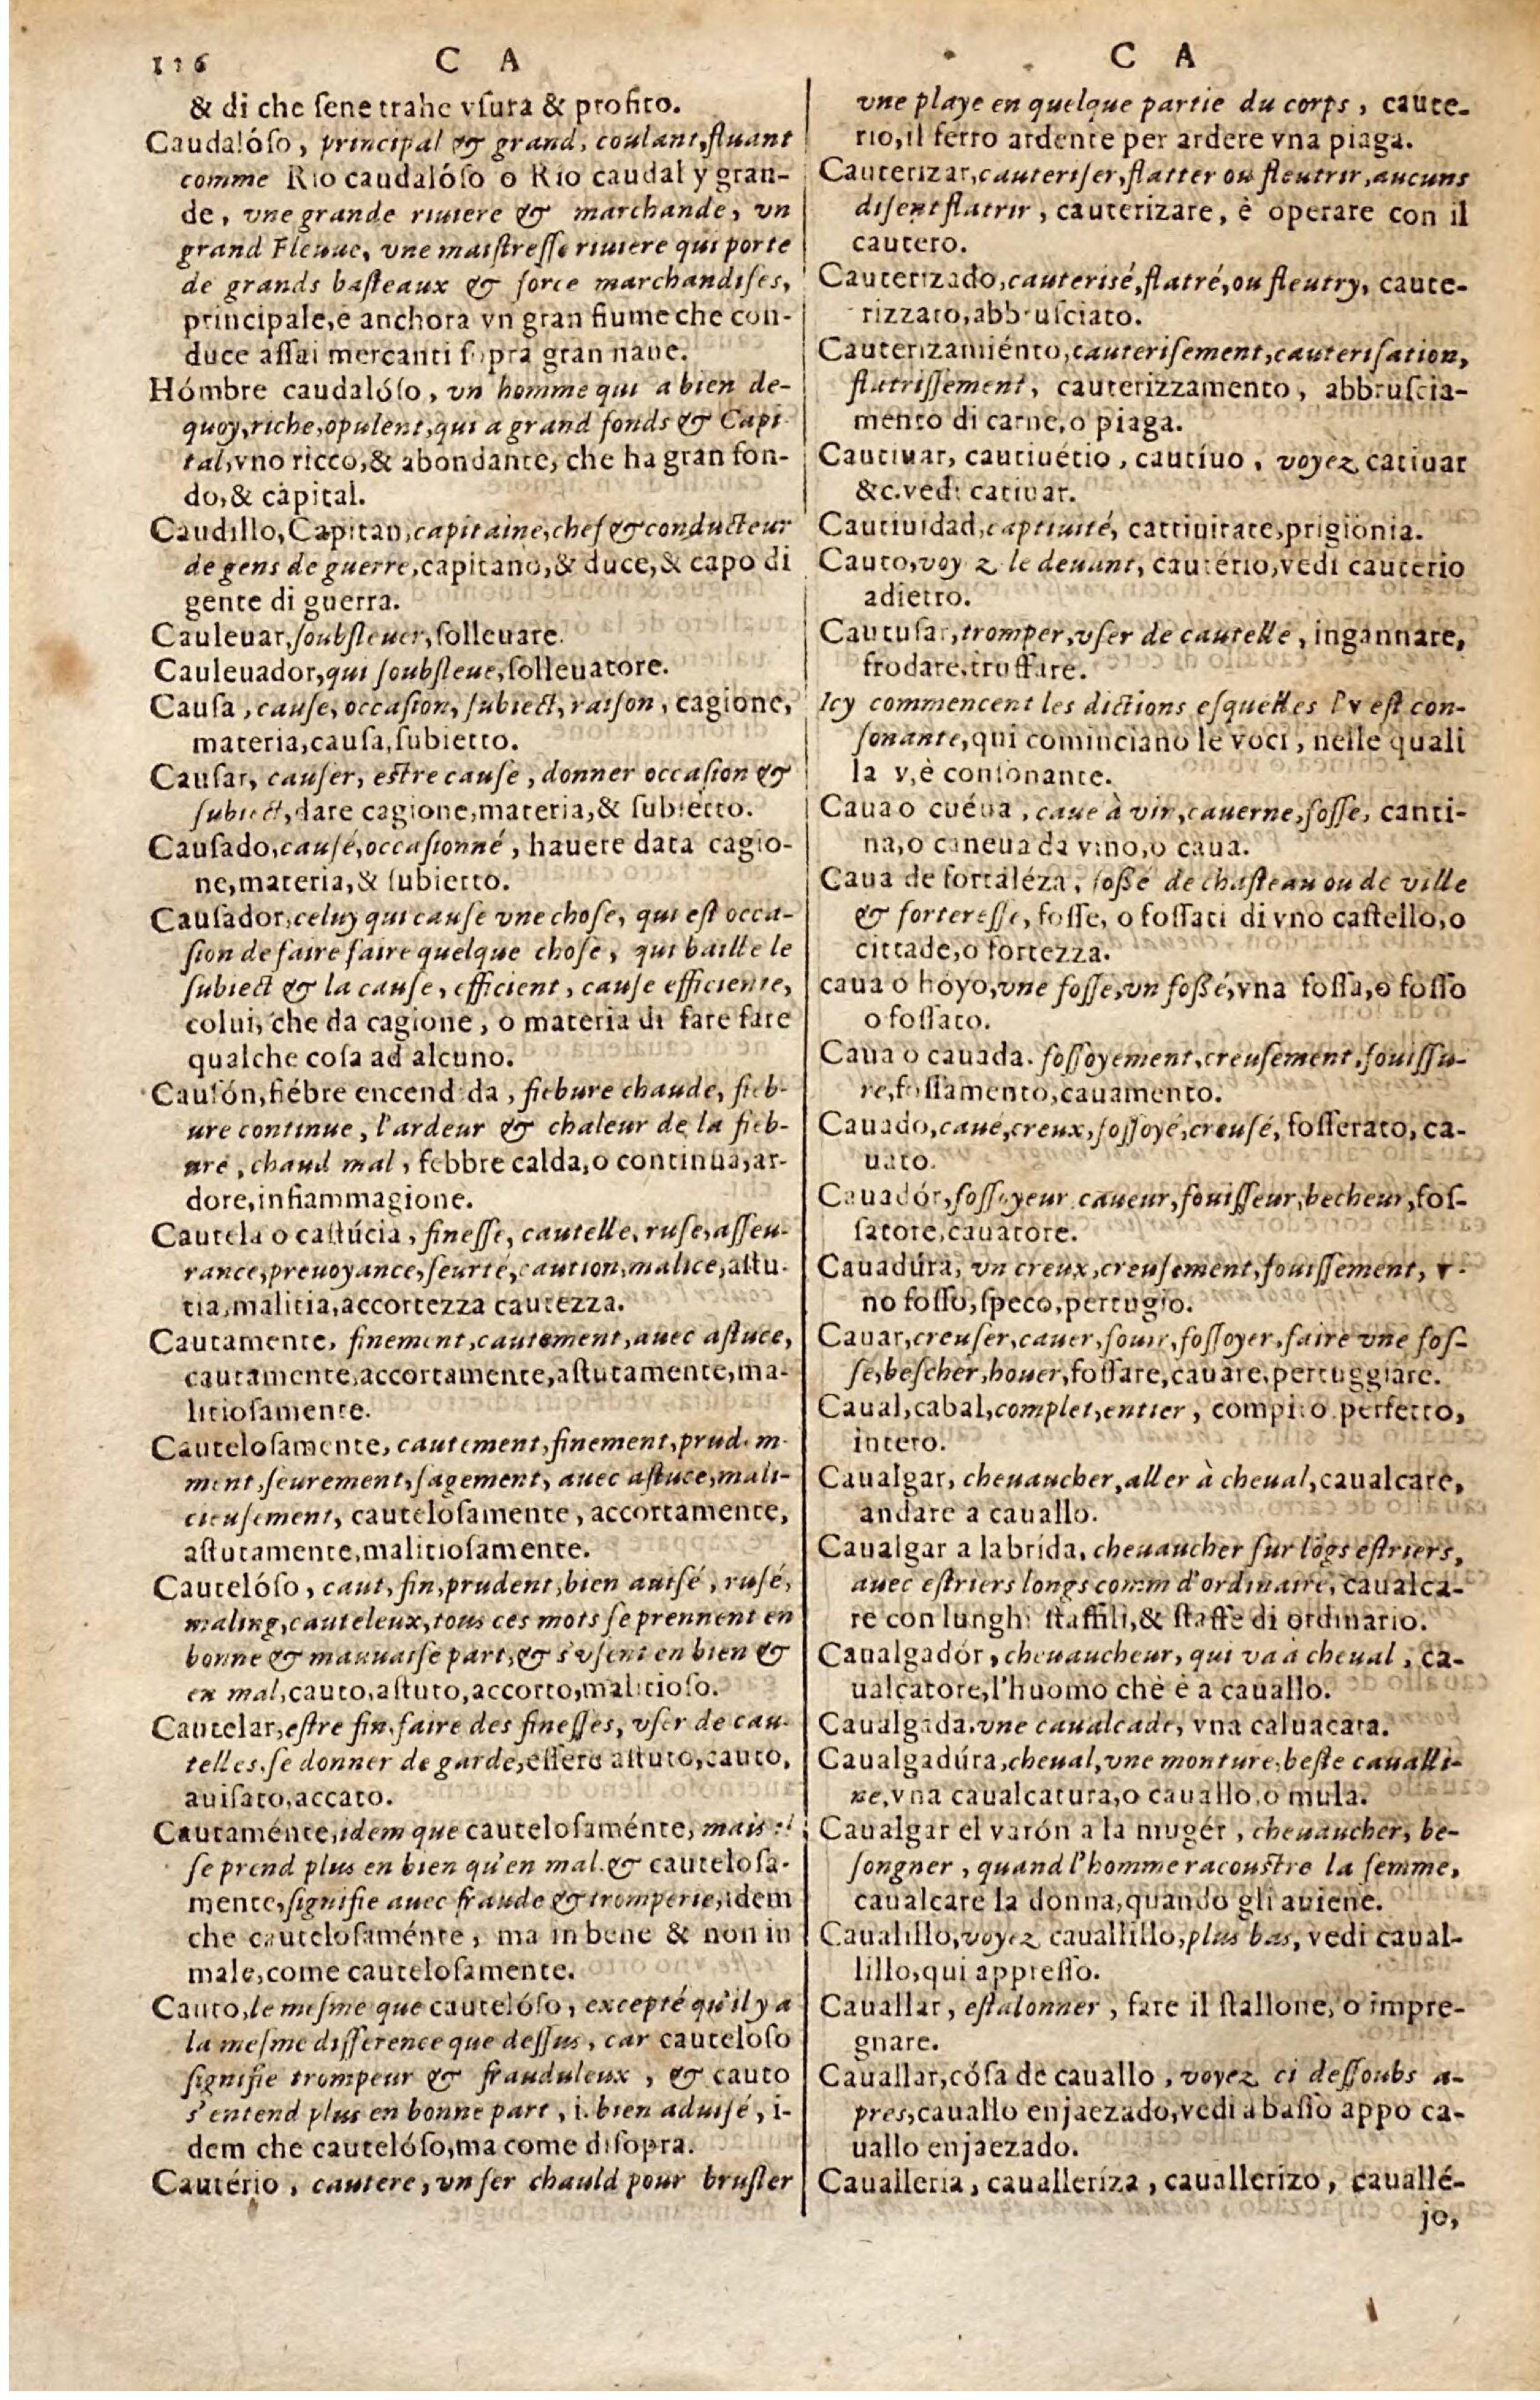 116 C A
& di che sene trahe vsura & profito.
Caudalóso, principal & grand, coulant, fluant
comme Rio caudalóso o Rio caudal y gran-
de, vne grande riuiere & marchande, vn
grand Fleuue, vne maistresse riuiere qui porte
de grands basteaux & force marchandises,
principale, e anchora vn gran fiume che con-
duce assai mercanti sopra gran naue.
Hómbre caudalóso, vn homme qui a bien de-
quoy, riche, opulent, qui a grand fonds & Capi-
tal, vno ricco, & abondante, che ha gran fon-
do, & capital.
Caudillo, Capitan, capitaine, chef & conducteur
de gens de guerre, capitano, & duce, & capo di
gente di guerra.
Cauleuar, soubsleuer, solleuare.
Cauleuador, qui soubsleue, solleuatore.
Causa, cause, occasion, subiect, raison, cagione,
materia, causa, subietto.
Causar, causer, estre cause, donner occasion &
subiect, dare cagione, materia, & subietto.
Causado, causé, occasionné, hauere data cagio-
ne, materia, & subietto.
Causador, celuy qui cause vne chose, qui est occa-
sion de faire faire quelque chose, qui baille le
subiect & la cause, efficient, cause efficiente,
colui, che da cagione, o materia di fare fare
qualche cosa ad alcuno.
Causón, fiébre encendida, fiebure chaude, fieb-
ure continue, l'ardeur & chaleur de la fieb-
ure, chaud mal, febbre calda, o continua, ar-
dore, infiammagione.
Cautela o castúcia, finesse, cautelle, ruse, asseu-
rance, preuoyance, seurté, caution, malice, astu-
tia, malitia, accortezza cautezza.
Cautamente, finement, cautement, auec astuce,
cautamente, accortamente, astutamente, ma-
litiosamente.
Cautelosamente, cautement, finement, prudem-
ment, seurement, sagement, auec astuce, mali-
cieusement, cautelosamente, accortamente,
astutamente, malitiosamente.
Cautelóso, caut, fin, prudent, bien auisé, rusé,
maling, cauteleux, tous ces mots se prennent en
bonne & mauuaise part, & s'vsent en bien &
en mal, cauto, astuto, accorto, malitioso.
Cautelar, estre fin, faire des finesses, vser de cau-
telles, se donner de garde, essere astuto, cauto,
auisato, accato.
Cautaménte, idem que cautelosaménte, mais il
se prend plus en bien qu'en mal. & cautelosa-
mente, signifie auec fraude & tromperie, idem
che cautelosaménte, ma in bene & non in
male, come cautelosamente.
Cauto, le mesme que cautelóso, excepté qu'il y a
la mesme difference que dessus, car cauteloso
signifie trompeur & frauduleux, & cauto
s'entend plus en bonne part, i. bien aduisé, i-
dem che cautelóso, ma come disopra.
Cautério, cautere, vn fer chauld pour brusler
C A
vne playe en quelque partie du corps, caute-
rio, il ferro ardente per ardere vna piaga.
Cauterizar, cauteriser, flatter ou fleutrir, aucuns
disent flatrir, cauterizare, è operare con il
cautero.
Cauterizado, cauterisé, flatré, ou fleutry, caute-
rizzato, abbrusciato.
Cauterizamiénto, cauterisement, cauterisation,
flatrissement, cauterizzamento, abbruscia-
mento di carne, o piaga.
Cautiuar, cautiuério, cautíuo, voyez catiuar
&c. vedi catiuar.
Cautiuidad, captiuité, cattiuitate, prigionia.
Cauto, voyez le deuant, cautério, vedi cauterio
adietro.
Cautusar, tromper, vser de cautelle, ingannare,
frodare, truffare.
Icy commencent les dictions esquelles l'v est con-
sonante, qui cominciano le voci, nelle quali
la v, è consonante.
Caua o cuéua, caue à vin, cauerne, fosse, canti-
na, o caneua da vino, o caua.
Caua de fortaléza, fossé de chasteau ou de ville
& forteresse, fosse, o fossati di vno castello, o
cittade, o fortezza.
caua o hoyo, vne fosse, vn fossé, vna fossa, o fosso
o fossato.
Caua o cauada. fossoyement, creusement, fouissu-
re, fossamento, cauamento.
Cauado, caué, creux, fossoyé, creusé, fosserato, ca-
uato.
Cauadór, fossoyeur caueur, fouisseur, becheur, fos-
satore, cauatore.
Cauadúra, vn creux, creusement, fouissement, v-
no fosso, speco, pertugio.
Cauar, creuser, cauer, fouir, fossoyer, faire vne fos-
se, bescher, houer, fossare, cauare, pertuggiare.
Caual, cabal, complet, entier, compito perfetto,
intero.
Caualgar, cheuaucher, aller à cheual, caualcare,
andare a cauallo.
Caualgar a la brida, cheuaucher sur lōgs estriers,
auec estriers longs comm d'ordinaire, caualca-
re con lunghi staffili, & staffe di ordinario.
Caualgadór, cheuaucheur, qui va à cheual, ca-
ualcatore, l'huomo chè è a cauallo.
Caualgada, vne caualcade, vna caluacata.
Caualgadúra, cheual, vne monture, beste cauall-
ne, vna caualcatura, o cauallo, o mula.
Caualgar el varón a la mugér, cheuaucher, be-
songner, quand l'homme racoustre la femme,
caualcare la donna, quando gli auiene.
Caualillo, voyez cauallillo, plus bas, vedi caual-
lillo, qui appresso.
Cauallar, estalonner, fare il stallone, o impre-
gnare.
Cauallar, cósa de cauallo, voyez ci dessoubs a-
pres, cauallo enjaezado, vedi a basso appo ca-
uallo enjaezado.
Caualleria, caualleríza, cauallerizo, cauallé-
jo,